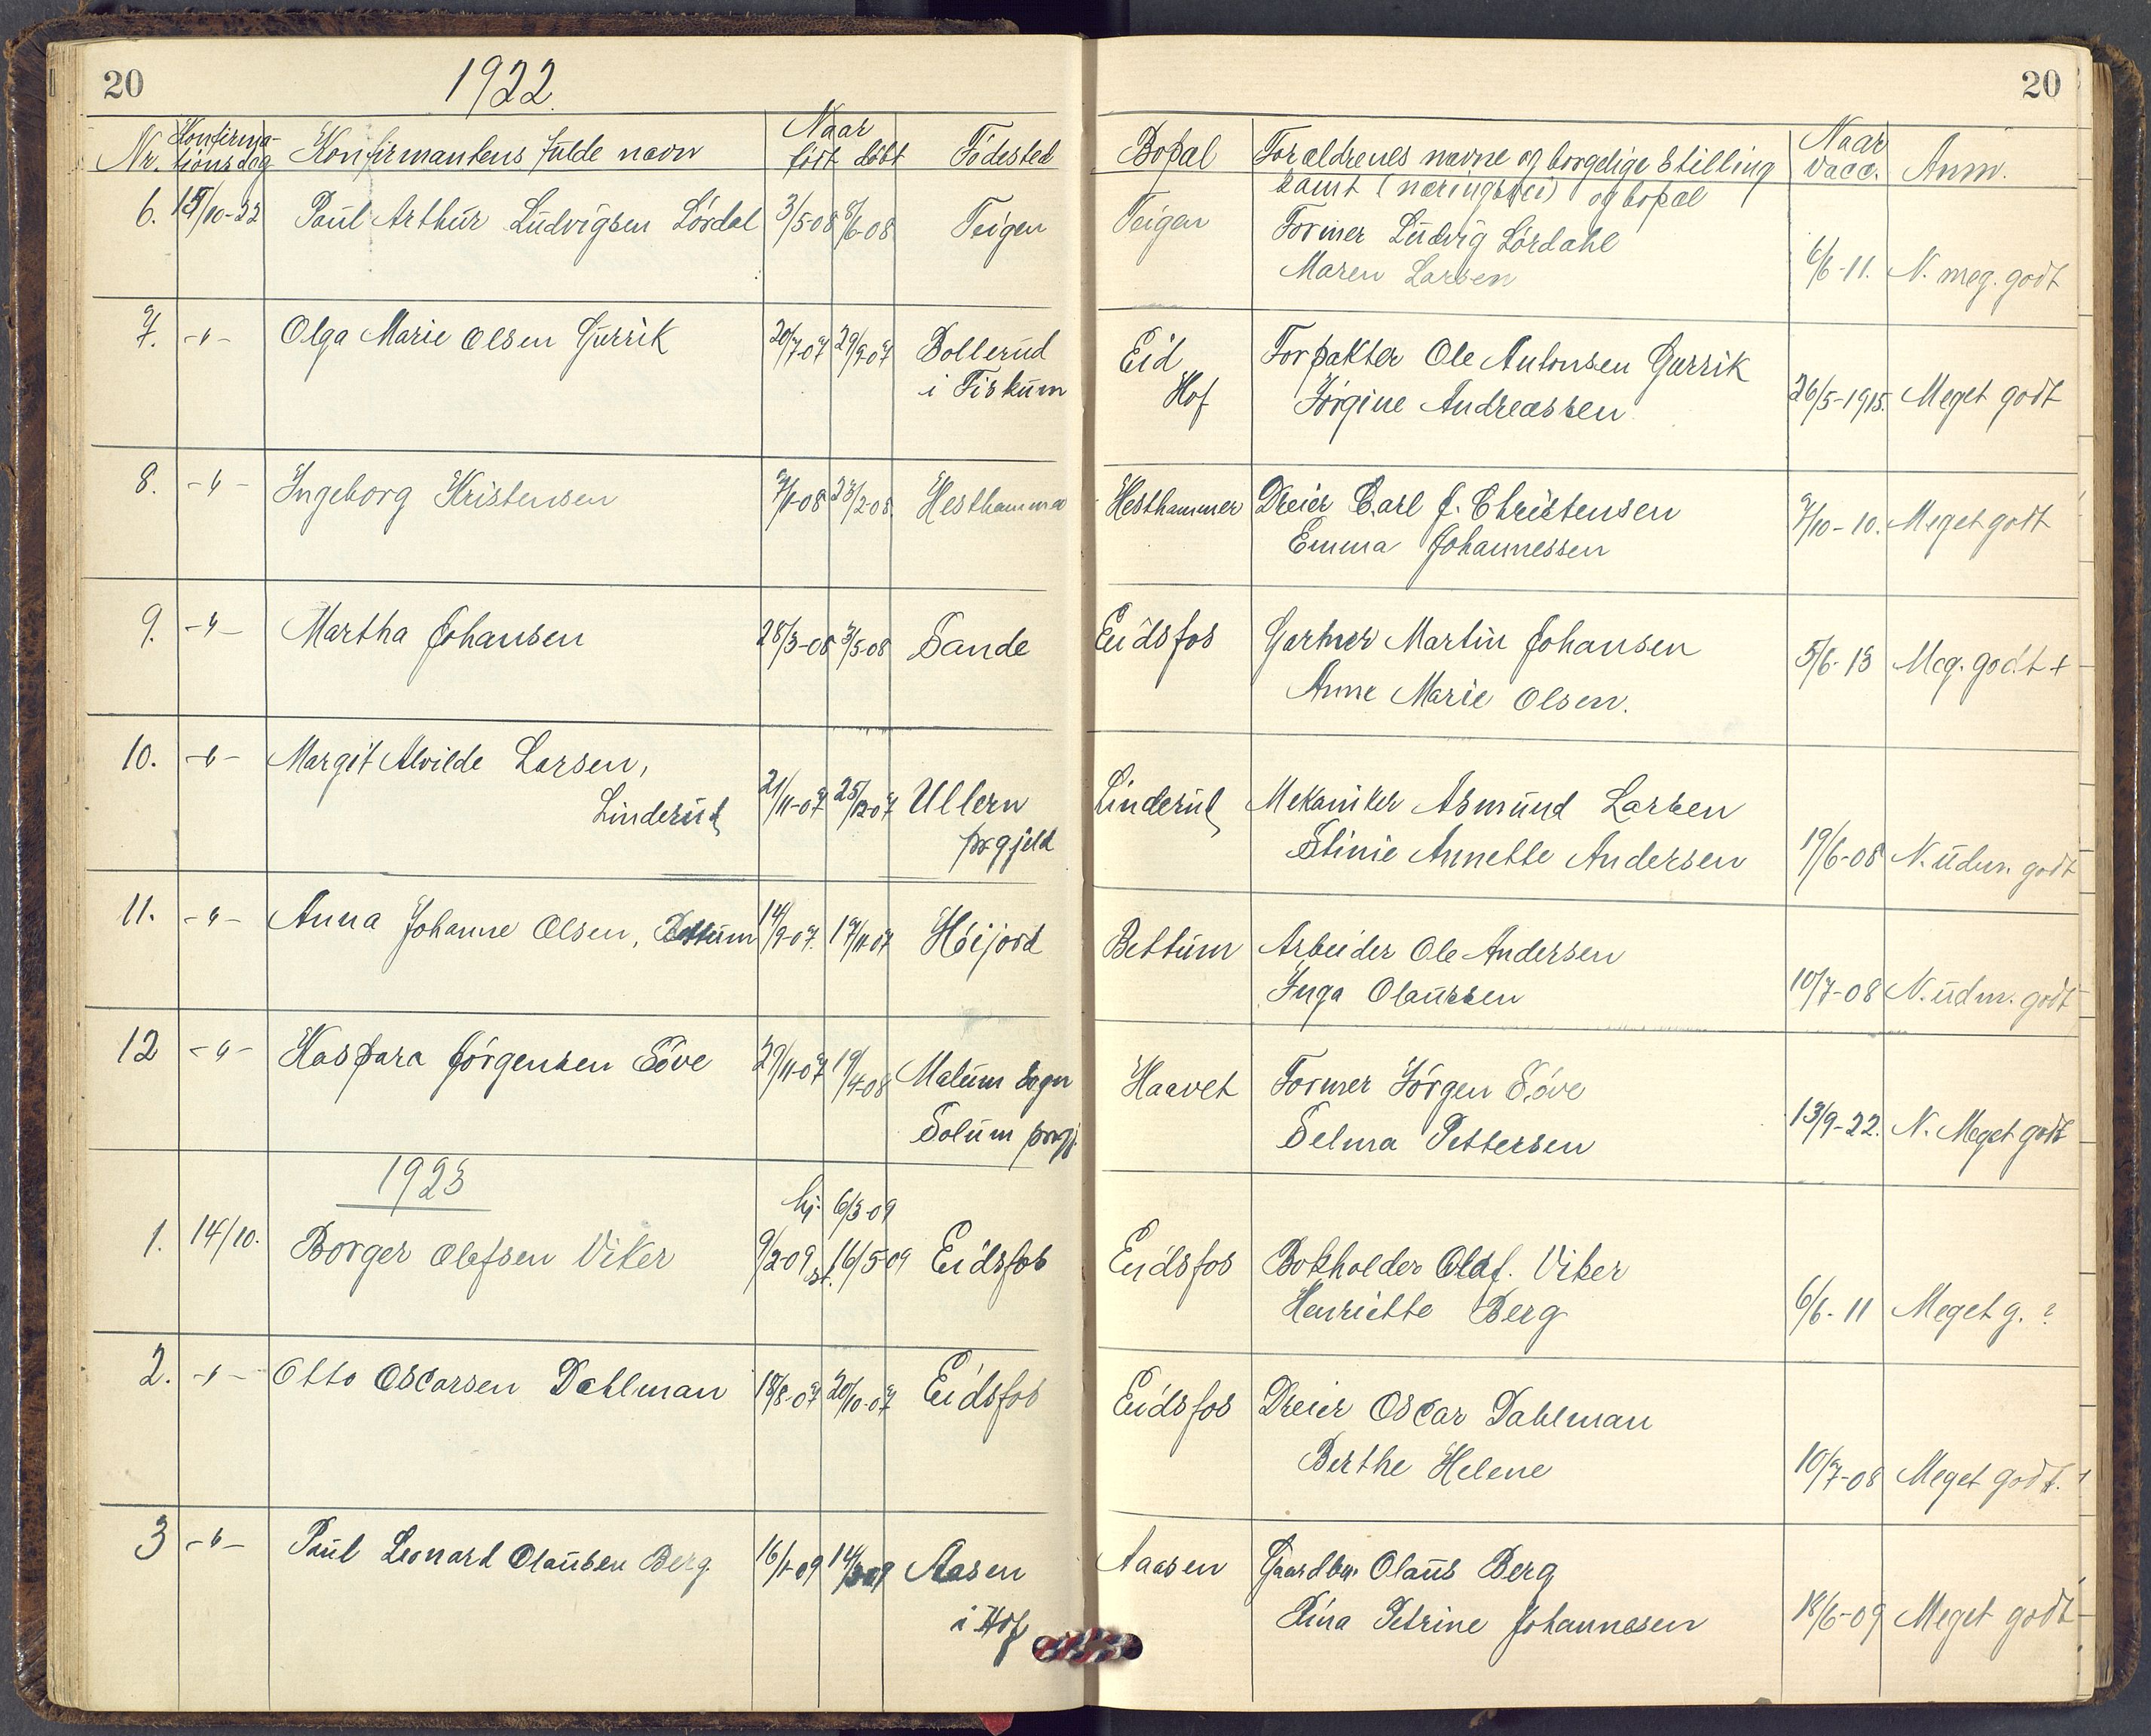 20
1922.
Nr. Konfirma-tionsdag Konfirmantens fulde navn Naar født døbt Fødested
6. 15/10-22 Paul Arthur Ludvigsen Lørdal 3/5-08 8/6-08 Teigen
7. -"- Olga Marie Olsen Gurrik 20/7-07 29/9-07 Bollerud
i Fiskum
8. -"- Ingeborg Kristensen 7/1-08 23/2-08 Hesthammer
9. -"- Martha Johansen 28/3-08 3/5-08 Sande
10. -"- Margit Alvilde Larsen,
Linderud 21/11-07 25/12-07 Ullern
prgjeld
11. -"- Anna Johanne Olsen, Bettum 14/9-07 17/11-07 Høijord
12 -"- Kaspara Jørgensen Søve 29/11-07 19/4-08 Melum sogn
Solum prgj.
1923
hj. 6/3-09
1. 14/10. Borger Olefsen Viker 9/2-09 st. 16/5-09 Eidsfos
2. -"- Otto Oscarsen Dahlman 18/8-07 20/10-07 Eidsfos
3 -"- Paul Leonard Olausen Berg. 16/1-09 14/3-09 Aasen
i Hof
20
Bopæl Forældrenes navne og borgelige Stilling Naar vacc. Anm.
samt (næringsvei) og bopæl
Teigen Former Ludvig Lørdahl
Maren Larsen 6/6-11. N. meg. godt
Eid Forpakter Ole Antonsen Gurrik
Hof Jørgine Andreassen 26/5-1915. Meget godt
Hesthammer Dreier Carl J. Christensen 7/10-10. Meget godt
Emma Johannessen
Eidsfos Gartner Martin Johansen 5/6-13 Meg. godt +
Anne Marie Olsen.
Linderud Mekaniker Asmund Larsen
Stinie Annette Andersen 19/6-08 N. udm. godt
Bettum Arbeider Ole Andersen
Inga Olaussen 10/7-08 N. udm. godt
Haavet Former Jørgen Søve
Selma Pettersen 13/9-22. N. Meget godt
Eidsfos Bokholder Olaf. Viker
Henriette Berg 6/6-11 Meget g. ?
Eidsfos Dreier Oscar Dahlman
Berthe Helene 10/7-08 Meget godt.
Aaasen Gaardbr. Olaus Berg
Lina Petrine Johannesen 18/6-09 Meget godt